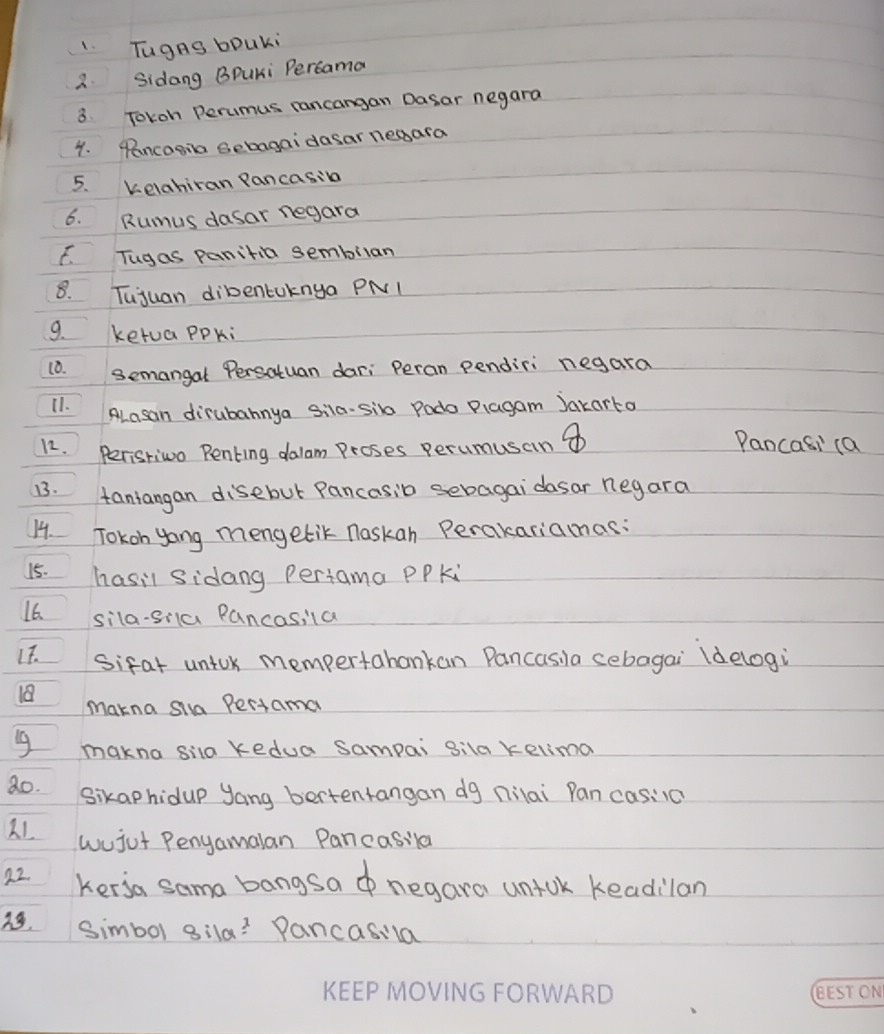 1. Tugas bpuki
2. Sidang BPUKi Pertama
3. Tokoh Perumus rancangan Dasar negara
4. Pancasila sebagai dasar negara
5. Kelahiran Pancasila
6. Rumus dasar negara
7. Tugas panitia sembilan
8. Tujuan dibentuknya PNI
9. ketua PPKi
10. semangat Persatuan dari Peran Pendiri negara
11. ALasan dirubahnya sila-sila Pada Piagam Jakarta
12. Peristiwa Penting dalam Proses Perumusan Pancasila
13. tantangan disebut Pancasila sebagai dasar negara
14. Tokoh yang mengetik naskah Perakariamasi
15. hasil sidang Pertama PPKi
16. sila-sila Pancasila
17. Sifat untuk mempertahankan Pancasila sebagai idelogi
18 makna sila Pertama
19 makna sila kedua sampai sila kelima
20. Sikap hidup yang bertentangan dg nilai Pancasila
21. wujut Penyamalan Pancasila
22 kerja sama bangsa & negara untuk keadilan
23. Simbol sila² Pancasila
KEEP MOVING FORWARD
BEST ON